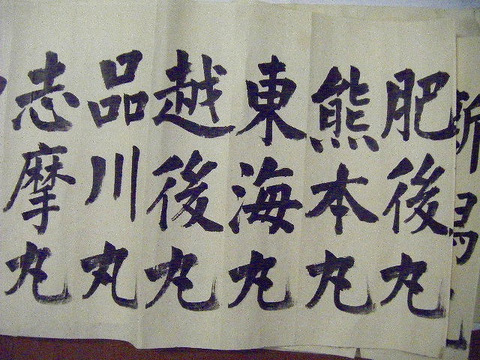 肥後丸
熊本丸
東海丸
越後丸
品川丸
志摩丸